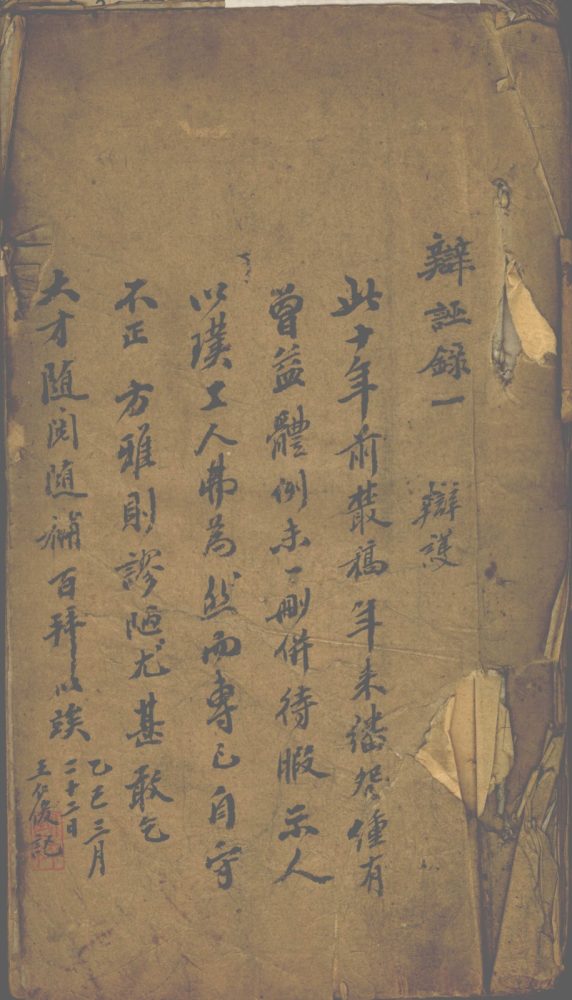 辯誣錄一 辯護
此十年前叢稿年來繙卷僅有
曾益體例未一刪併待暇示人
以璞工人弗為然而專己自守
不正方雅則謬陋尤甚敢乞
大才随閲随補百拜以誒
乙巳三月
二十二日
王仁俊記